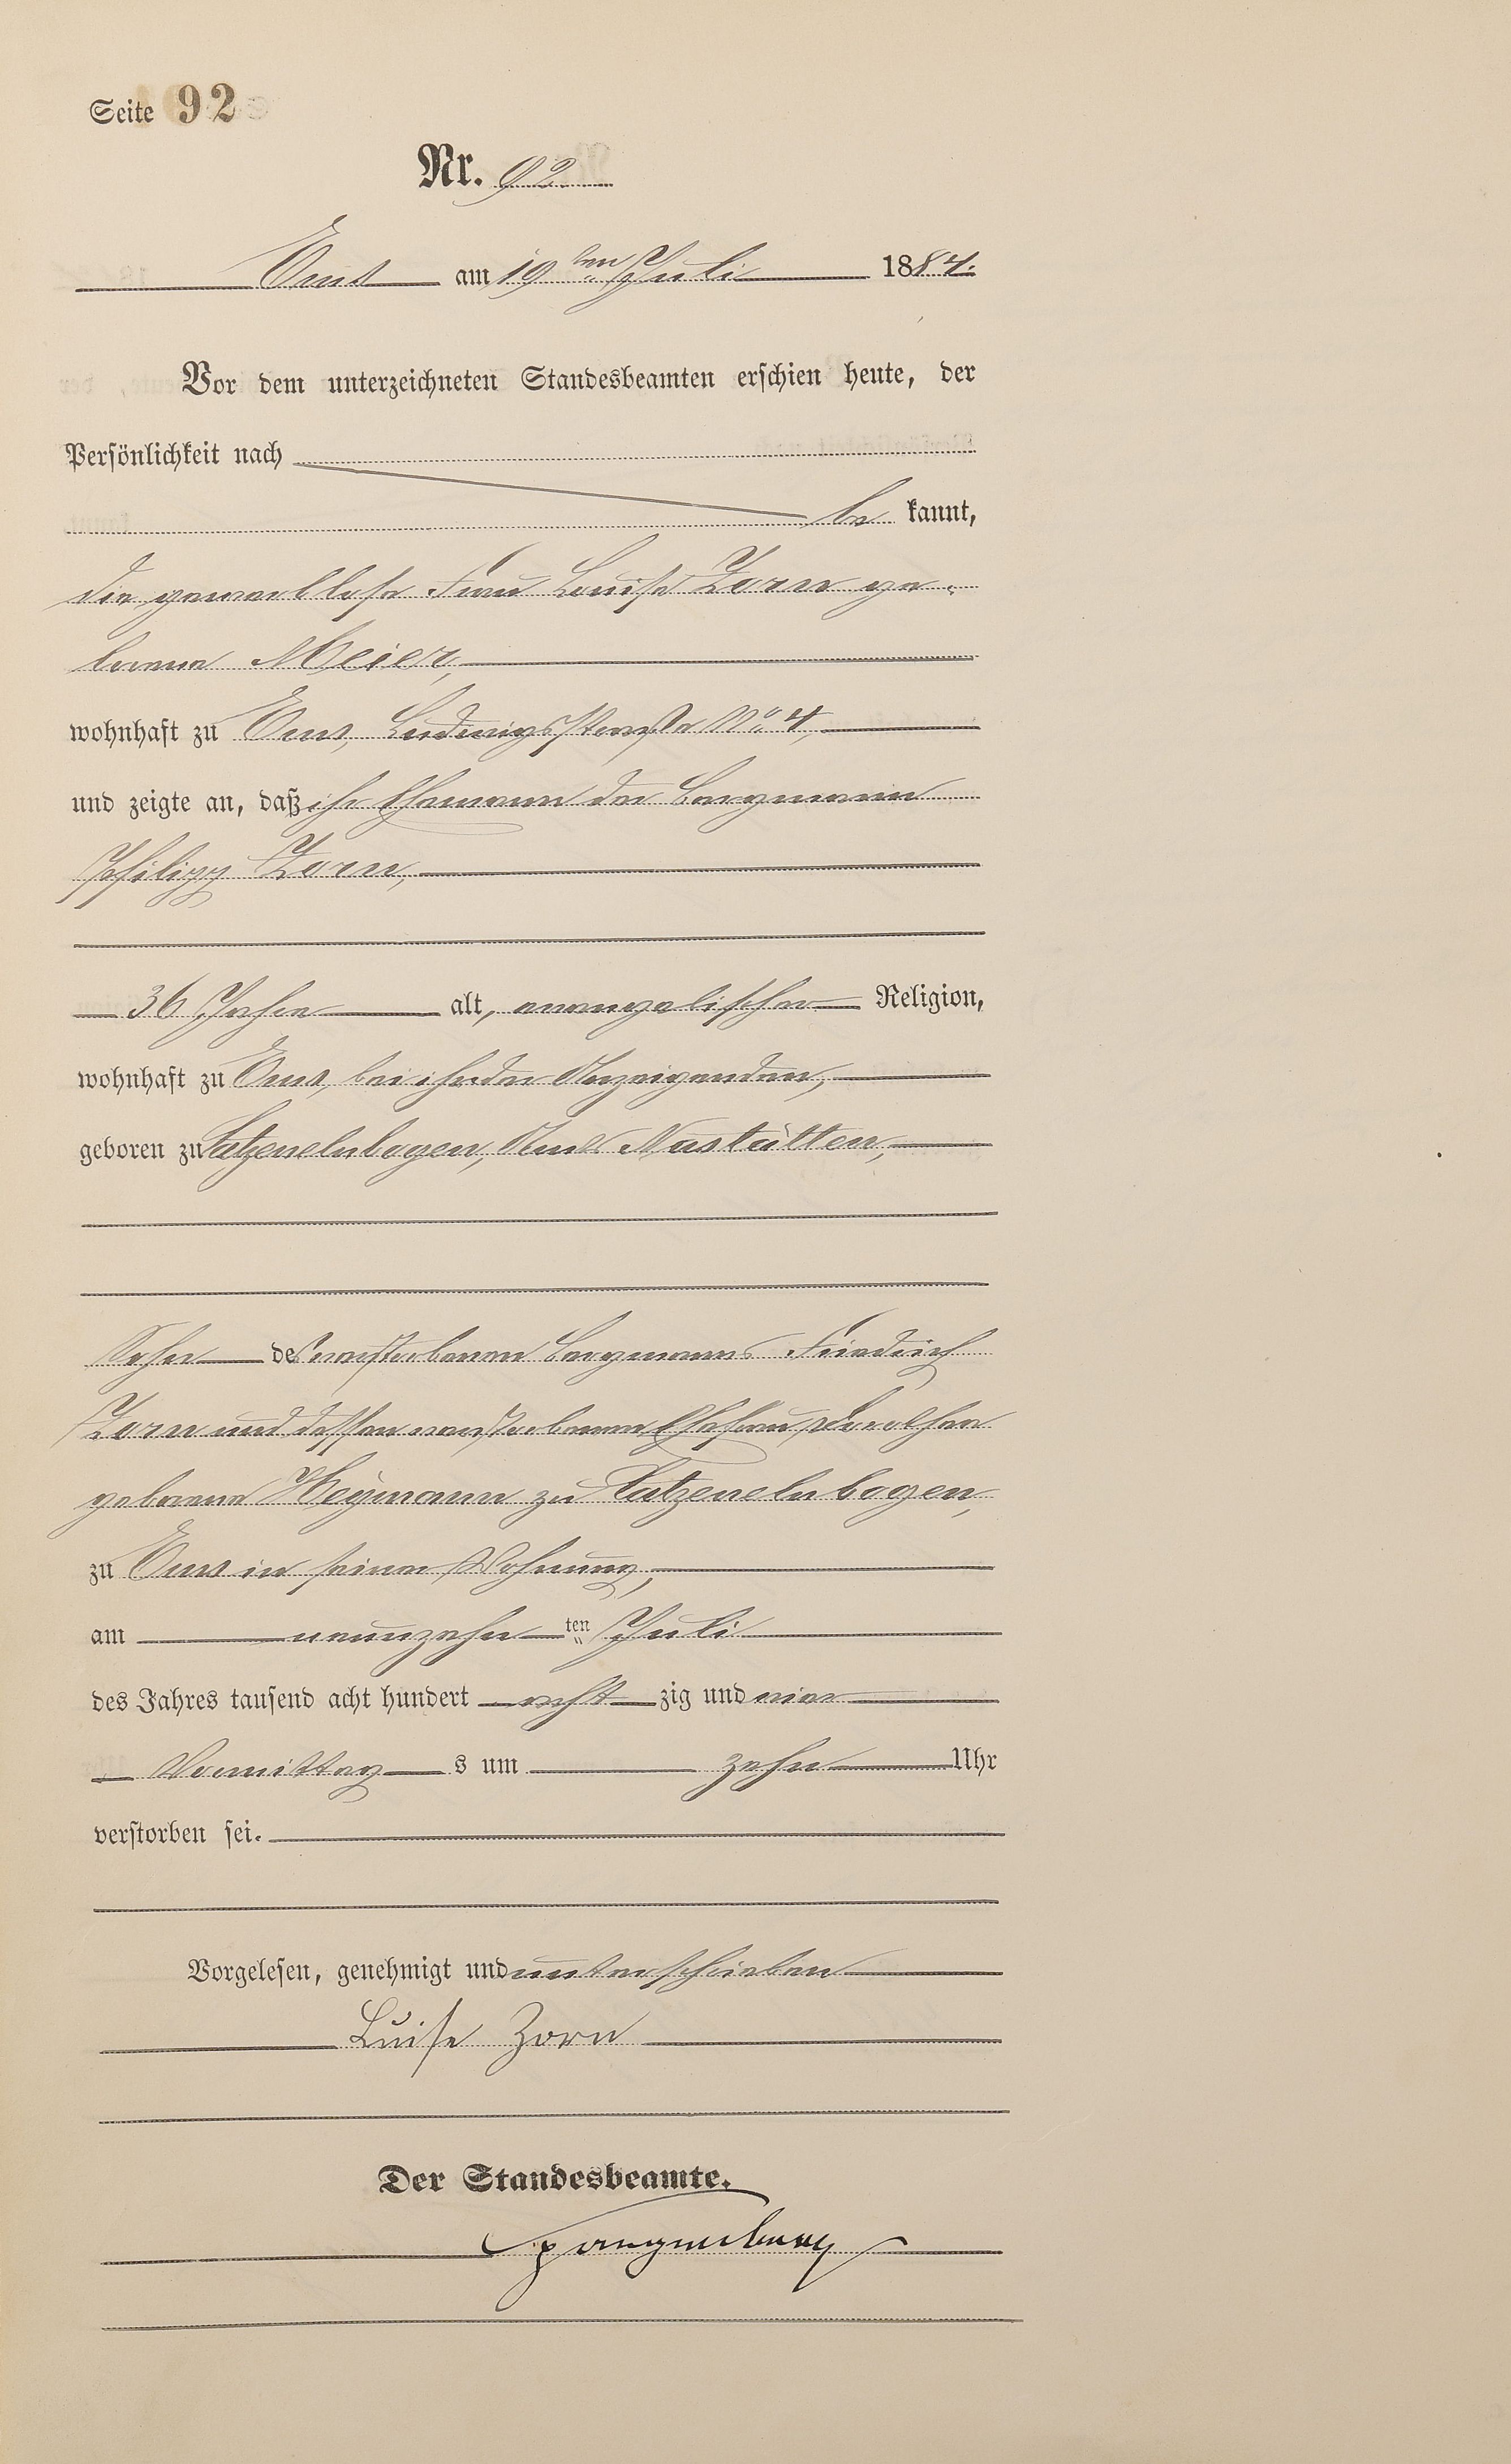 Seite 92
Nr. 92.
Ems am 19ten Juli 1884.
Vor dem unterzeichneten Standesbeamten erschien heute, der
Persönlichkeit nach
be kannt,
die gewerblose Frau Louise Zorn ge-
borene Meier,
wohnhaft zu Ems, Ludwigsstraße No 4,
und zeigte an, daß ihr Ehemann der Bergmann
Philipp Zorn,
36 Jahre alt, evangelischer Religion,
wohnhaft zu Ems, bei ihr der Anzeigenden,
geboren zu Katzenelnbogen, Amts Nastätten,
Sohn des verstorbenen Bergmanns Friedrich
Zorn und dessen verstorbenen Ehefrau, Dorothea
geborene Heymann zu Katzenelnbogen,
zu Ems in seiner Wohnung,
am neunzehn ten Juli
des Jahres tausend acht hundert acht zig und vier
Vormittag s um zehn Uhr
verstorben sei.
Vorgelesen, genehmigt und unterschrieben
Luise Zorn
Der Standesbeamte.
Spangenberg